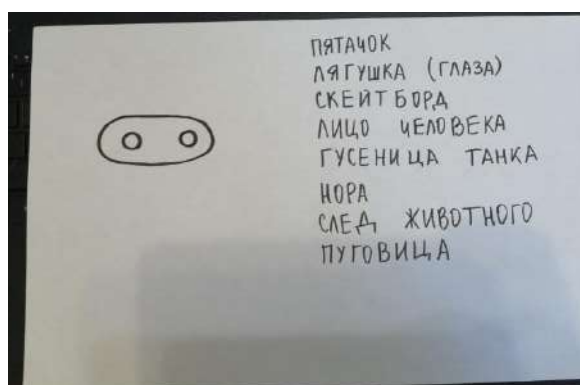 ПЯТАЧОК
ЛЯГУШКА (ГЛАЗА)
СКЕЙТБОРД
ЛИЦО ЧЕЛОВЕКА
ГУСЕНИЦА ТАНКА
НОРА
СЛЕД ЖИВОТНОГО
ПУГОВИЦА